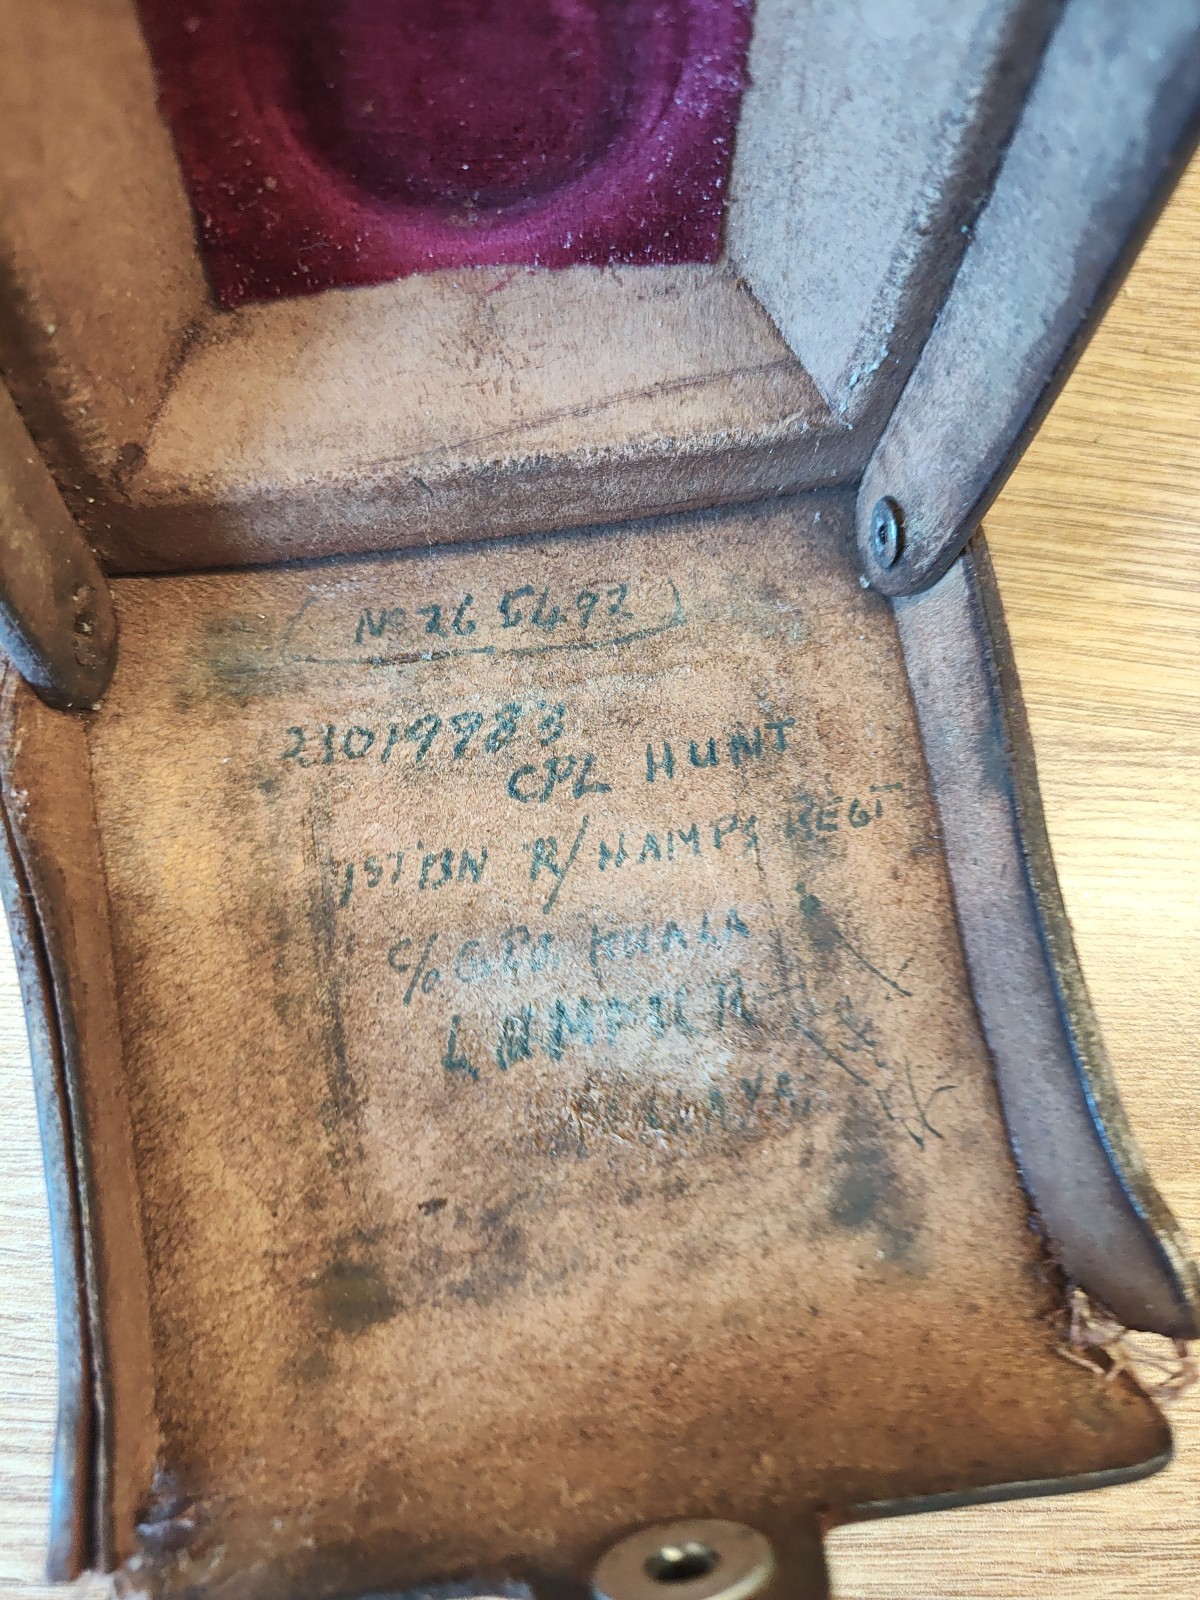 No 265492
21019983
CPL HUNT
1ST BN R/HAMPS REGT
C/O GPO KUALA
LUMPUR